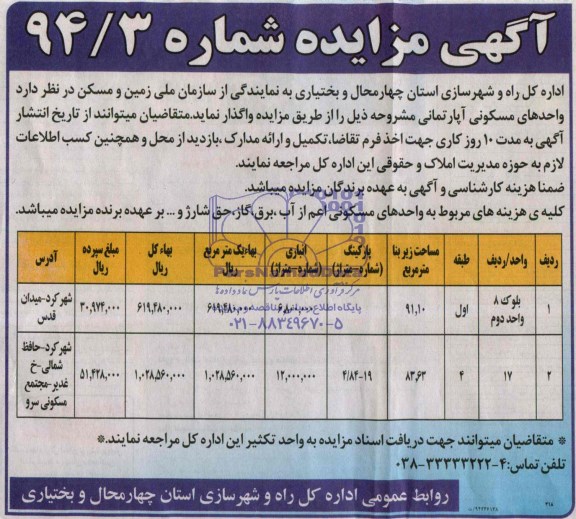 آگهی مزایده شماره ۹۴/۳
اداره کل راه و شهرسازی استان چهارمحال و بختیاری به نمایندگی از سازمان ملی زمین و مسکن در نظر دارد
واحدهای مسکونی آپارتمانی مشروحه ذیل را از طریق مزایده واگذار نماید.متقاضیان میتوانند از تاریخ انتشار
آگهی به مدت ۱۰ روز کاری جهت اخذ فرم تقاضا،تکمیل و ارائه مدارک ،بازدید از محل و همچنین کسب اطلاعات
لازم به حوزه مدیریت املاک و حقوقی این اداره کل مراجعه نمایند.
ضمنا هزینه کارشناسی و آگهی به عهده برندگان مزایده میباشد.
کلیه ی هزینه های مربوط به واحدهای مسکونی اعم از آب ،برق،گاز،حق شارژ و ... بر عهده برنده مزایده میباشد.
ردیف واحد/ردیف طبقه مساحت زیر بنا مترمربع پارکینگ (شماره-متراژ) انباری (شماره-متراژ) بهاءیک متر مربع ریال بهاء کل ریال مبلغ سپرده ریال آدرس
۱ بلوک ۸ واحد دوم اول ۹۱,۱۰ ۶,۸۰۰,۰۰۰ ۶۱۹,۴۸۰,۰۰۰ ۶۱۹,۴۸۰,۰۰۰ ۳۰,۹۷۴,۰۰۰ شهرکرد-میدان قدس
۲ ۱۷ ۴ ۸۳,۶۳ ۴/۸۴-۱۹ ۱۲,۰۰۰,۰۰۰ ۱,۰۲۸,۵۶۰,۰۰۰ ۱,۰۲۸,۵۶۰,۰۰۰ ۵۱,۴۲۸,۰۰۰ شهرکرد-حافظ شمالی-خ غدیر-مجتمع مسکونی سرو
ParsNamadData
مرکز فرآوری اطلاعات پارس نماد داده ها
پایگاه اطلاع رسانی مناقصه و مزایده
۰۲۱-۸۸۳۴۹۶۷۰-۵
* متقاضیان میتوانند جهت دریافت اسناد مزایده به واحد تکثیر این اداره کل مراجعه نمایند.*
تلفن تماس:۴-۰۳۸-۳۳۳۳۳۲۲۲
روابط عمومی اداره کل راه و شهرسازی استان چهارمحال و بختیاری